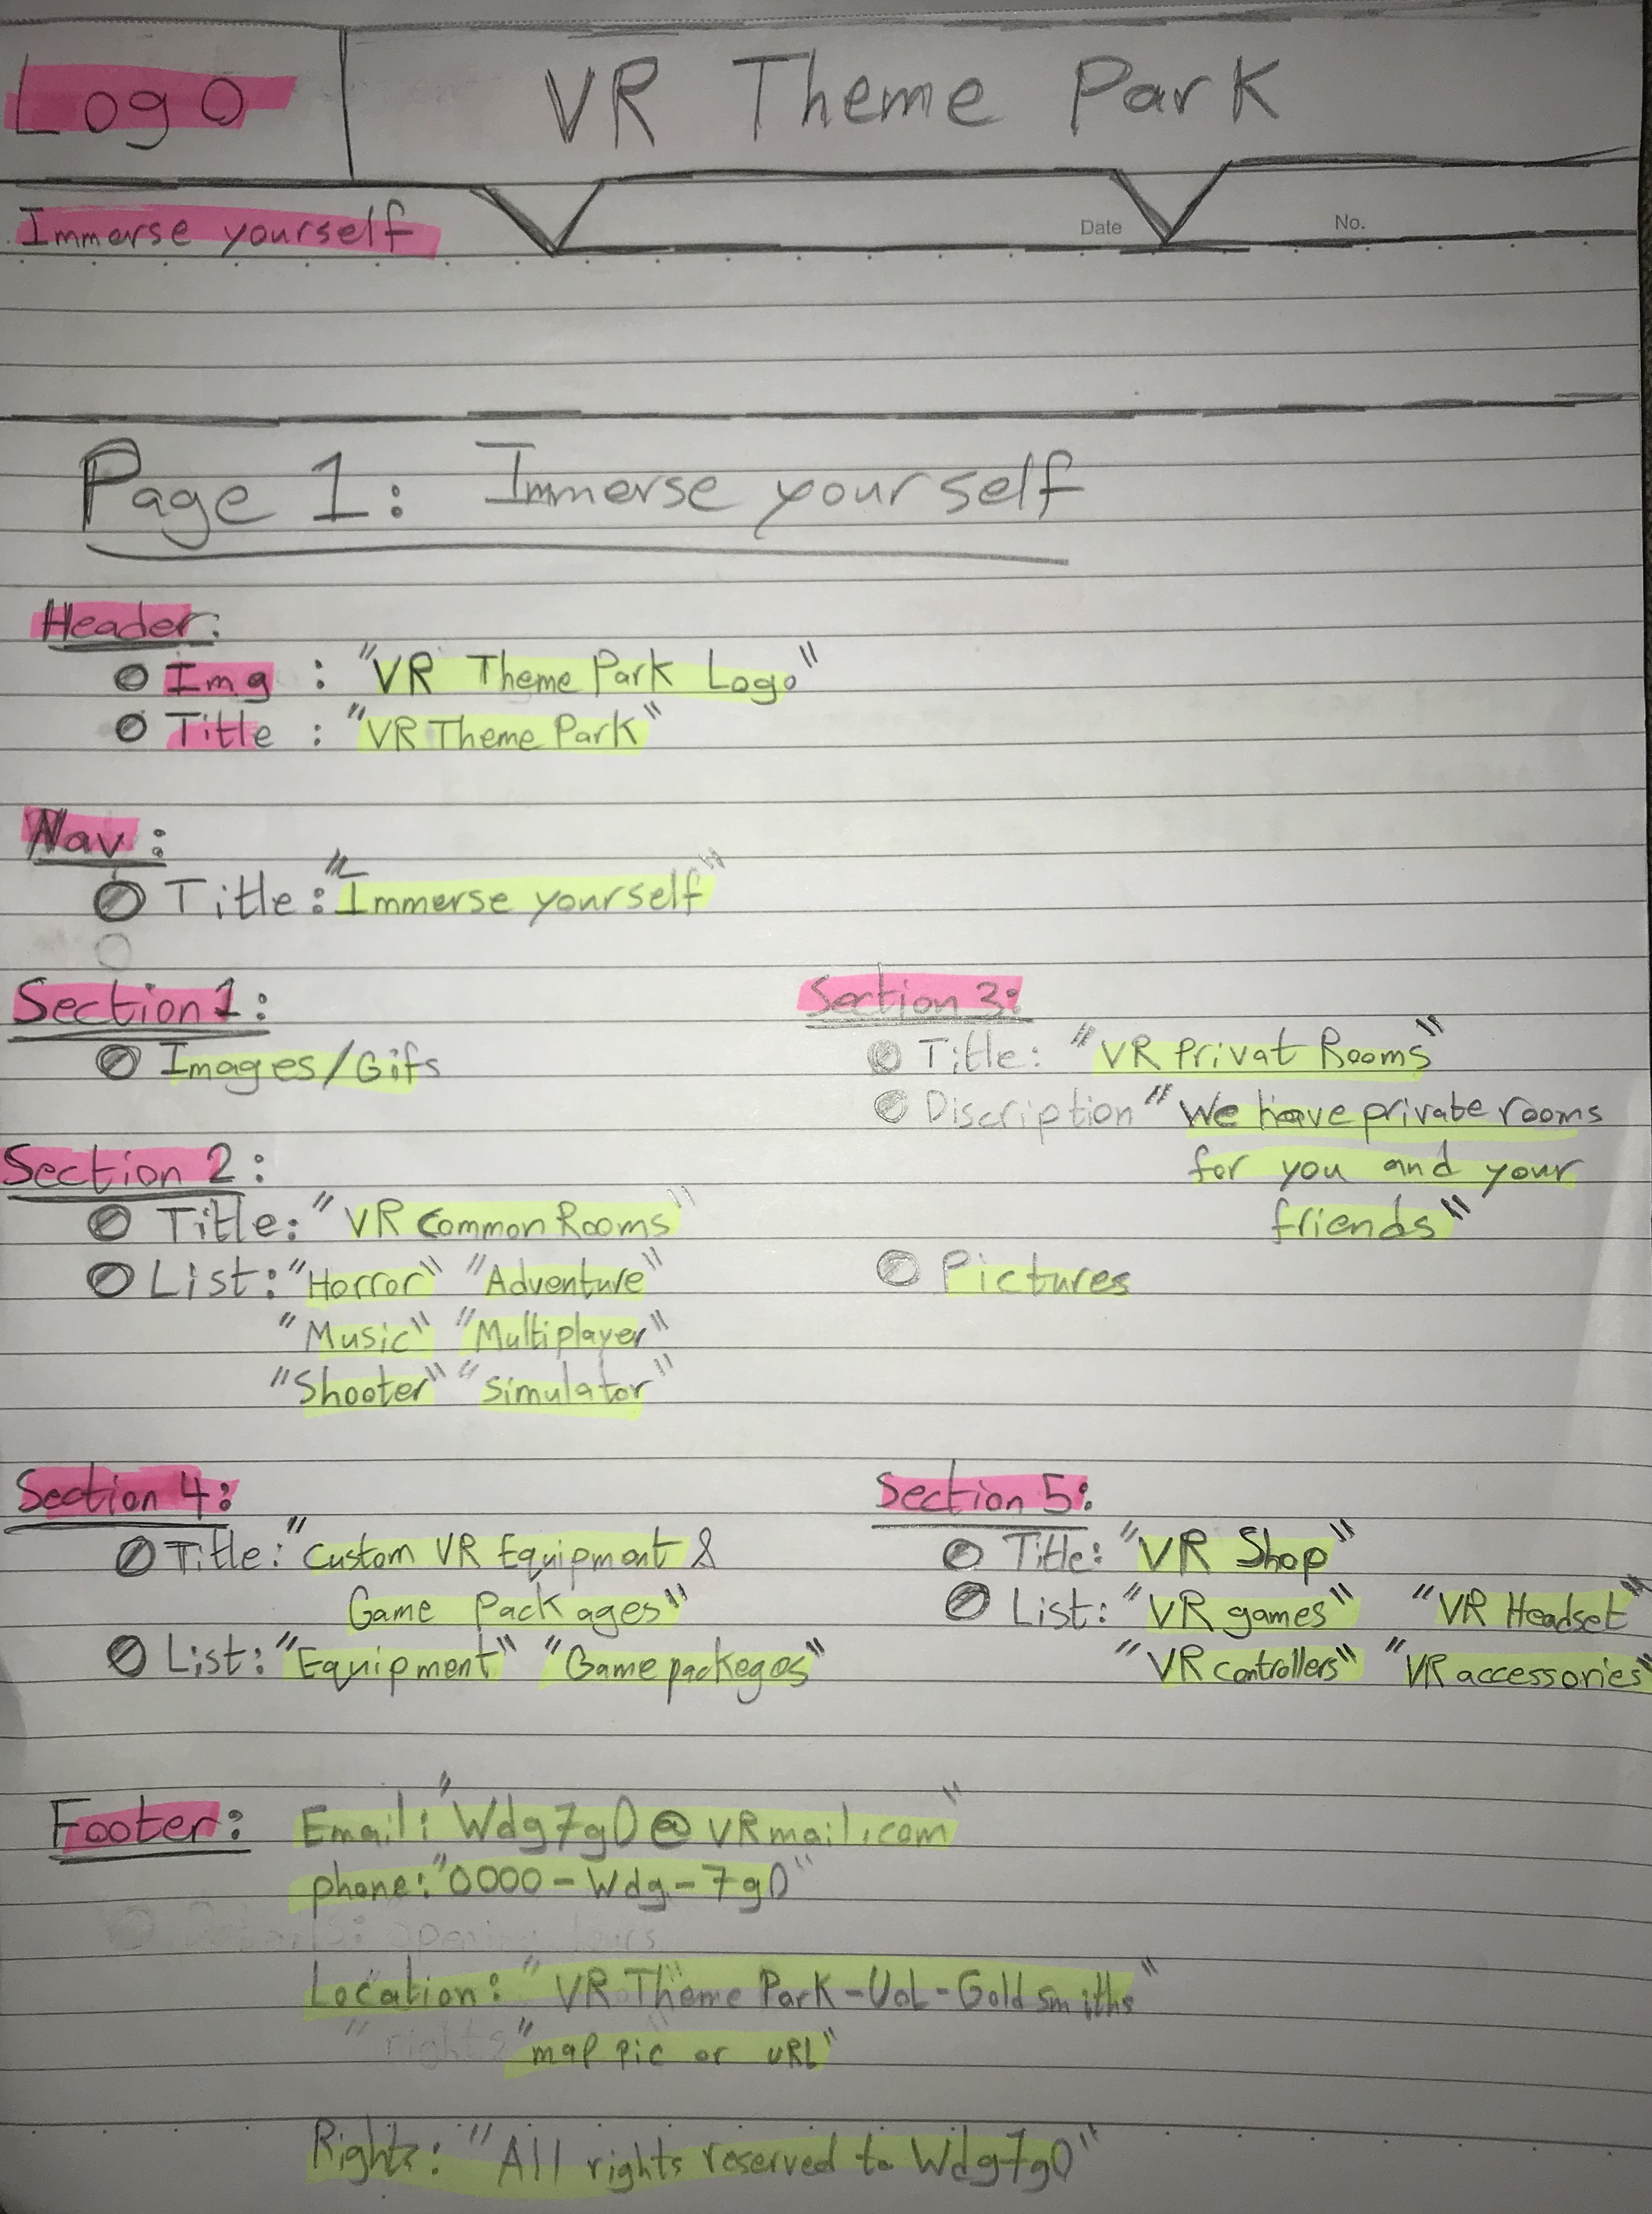 Logo
VR Theme Park
Immerse yourself
Date
No.
Page 1: Immerse yourself
Header:
Img : "VR Theme Park Logo"
Title : "VR Theme Park"
Nav :
Title: "Immerse yourself"
Section 1:
Images/Gifs
Section 2:
Title: "VR Common Rooms"
List: "Horror" "Adventure"
"Music" "Multiplayer"
"Shooter" "Simulator"
Section 3:
Title: "VR Privat Rooms"
Discription "We have private rooms
for you and your
friends"
Pictures
Section 4:
Title: "Custom VR Equipment &
Game Packages"
List: "Equipment" "Game packeges"
Section 5:
Title: "VR Shop"
List: "VR games" "VR Headset"
"VR controllers" "VR accessories"
Footer: Email: "Wdg7g0@VRmail.com"
phone: "0000-Wdg-7g0"
Location: "VR Theme Park-UoL-Goldsmiths"
"rights" "map pic or URL"
Rights: "All rights reserved to Wdg7g0"